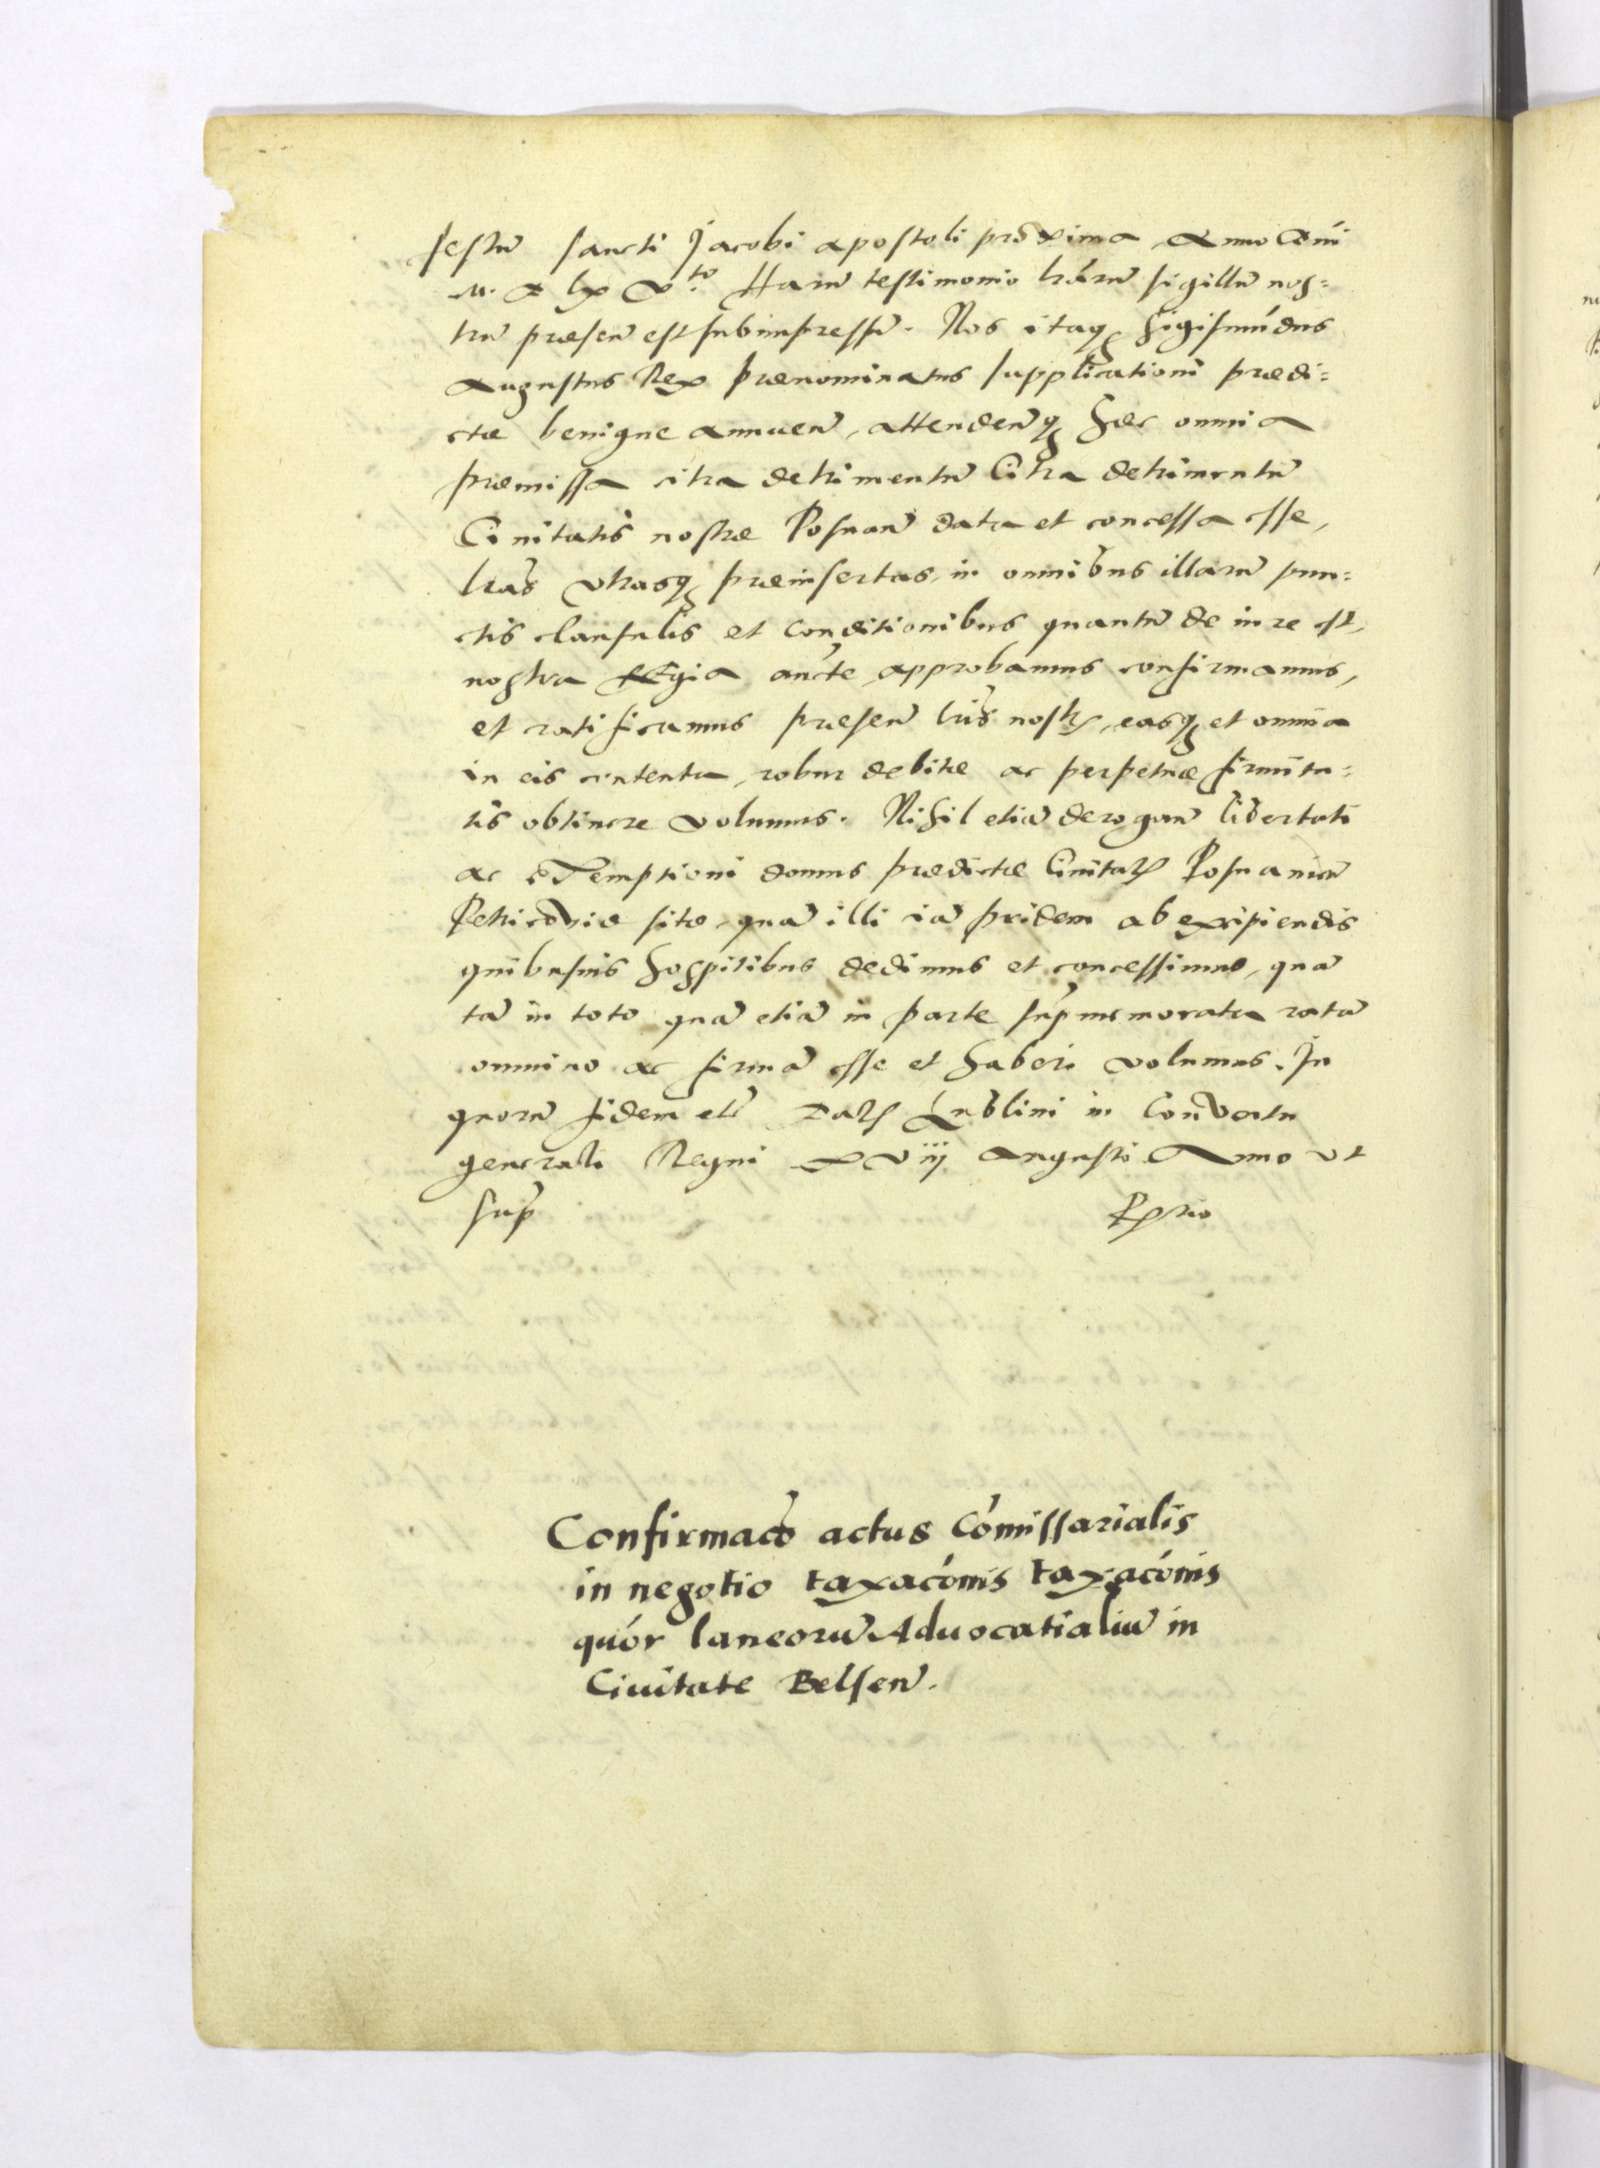 festũ sancti Jacobi apostoli proxima Anno Dñi
M. D lx Vto Harũ testimonio lr̃arũ sigillũ nos=
trũ præsen̄ est subimpressũ. Nos itaq̃ Sigismũdus
Augustus Rex prænominatus supplicationi prædi=
ctæ benigne annuen̄, attenden̄q̃ hæc omnia
præmissa citra detrimentũ Citra detrimentũ
Ciuitatis nostræ Posnan̄ data et concessa esse,
lr̃as vtrasq̃ præinsertas, in omnibus illarũ pun=
ctis clausulis et conditionibus quantũ de iure est,
nostra Regia aucte approbamus confirmamus,
et ratificamus præsen̄ lr̃is nostris, easq̃ et omnia
in eis contenta, robur debitæ ac perpetuæ firmita=
tis obtinere volumus. Nihil etiã derogan̄ libertati
ac exemptioni domus prædictæ Ciuitatis Posnanien̄
Petricouiæ sitæ, quã illi iã pridem ab excipiendis
quibusuis hospitibus dedimus et concessimus, quã
tã in toto quã etiã in parte sup̃memorata ratã
omnino ac firmã esse et haberi volumus. In
quorũ fidem etc̃ Datis Lublini in Conuentu
generali Regni XViij Augusti Anno vt
sup̃
Confirmac̃o actus Cõmissarialis
in negotio taxacõnis taxacõnis
quõr laneorũ Aduocatialiũ in
Ciuitate Belsen̄.